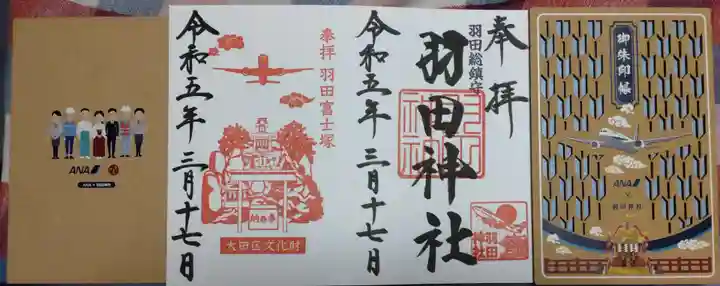 ANA
奉拝 羽田富士塚
令和五年 三月十七日
大田区文化財
奉拝
羽田総鎮守
羽田神社
令和五年 三月十七日
羽田
神社
御朱印帳
ANA
×
羽田神社